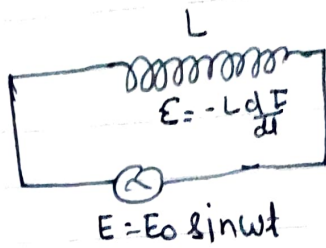 L
ε = -L dI/dt
E = E₀ sinωt